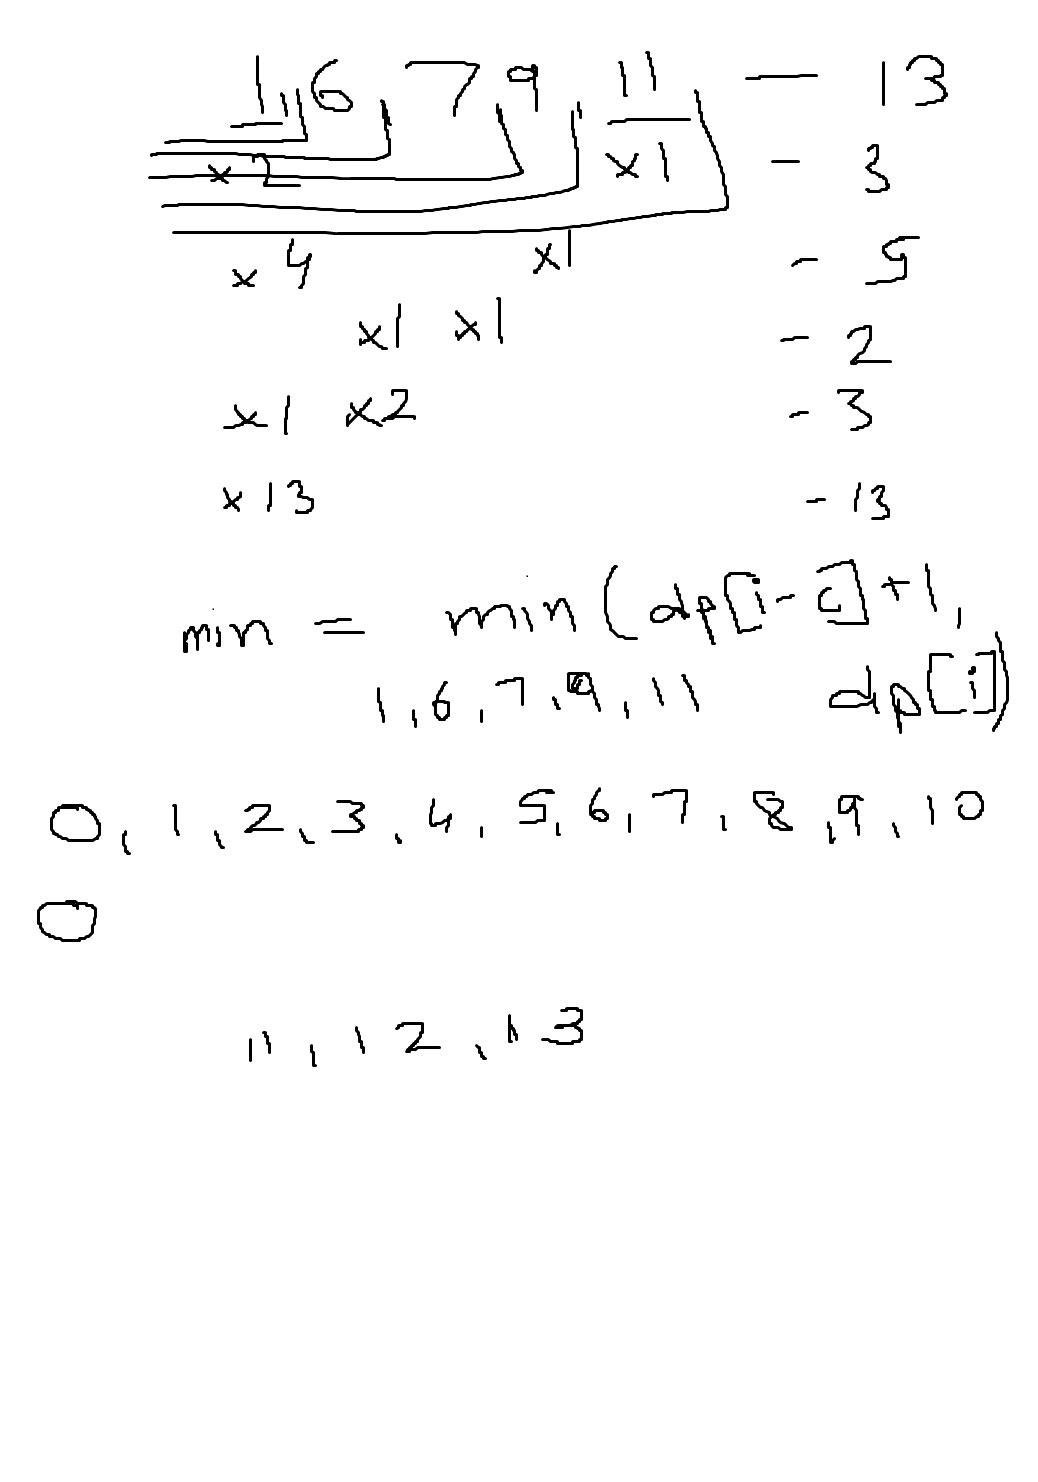 1, 6, 7, 9, 11 — 13
x2 x1 - 3
x4 x1 - 5
x1 x1 - 2
x1 x2 - 3
x13 - 13
min = min(dp[i-c]+1,
1, 6, 7, 9, 11 dp[i])
0, 1, 2, 3, 4, 5, 6, 7, 8, 9, 10
0
11, 12, 13